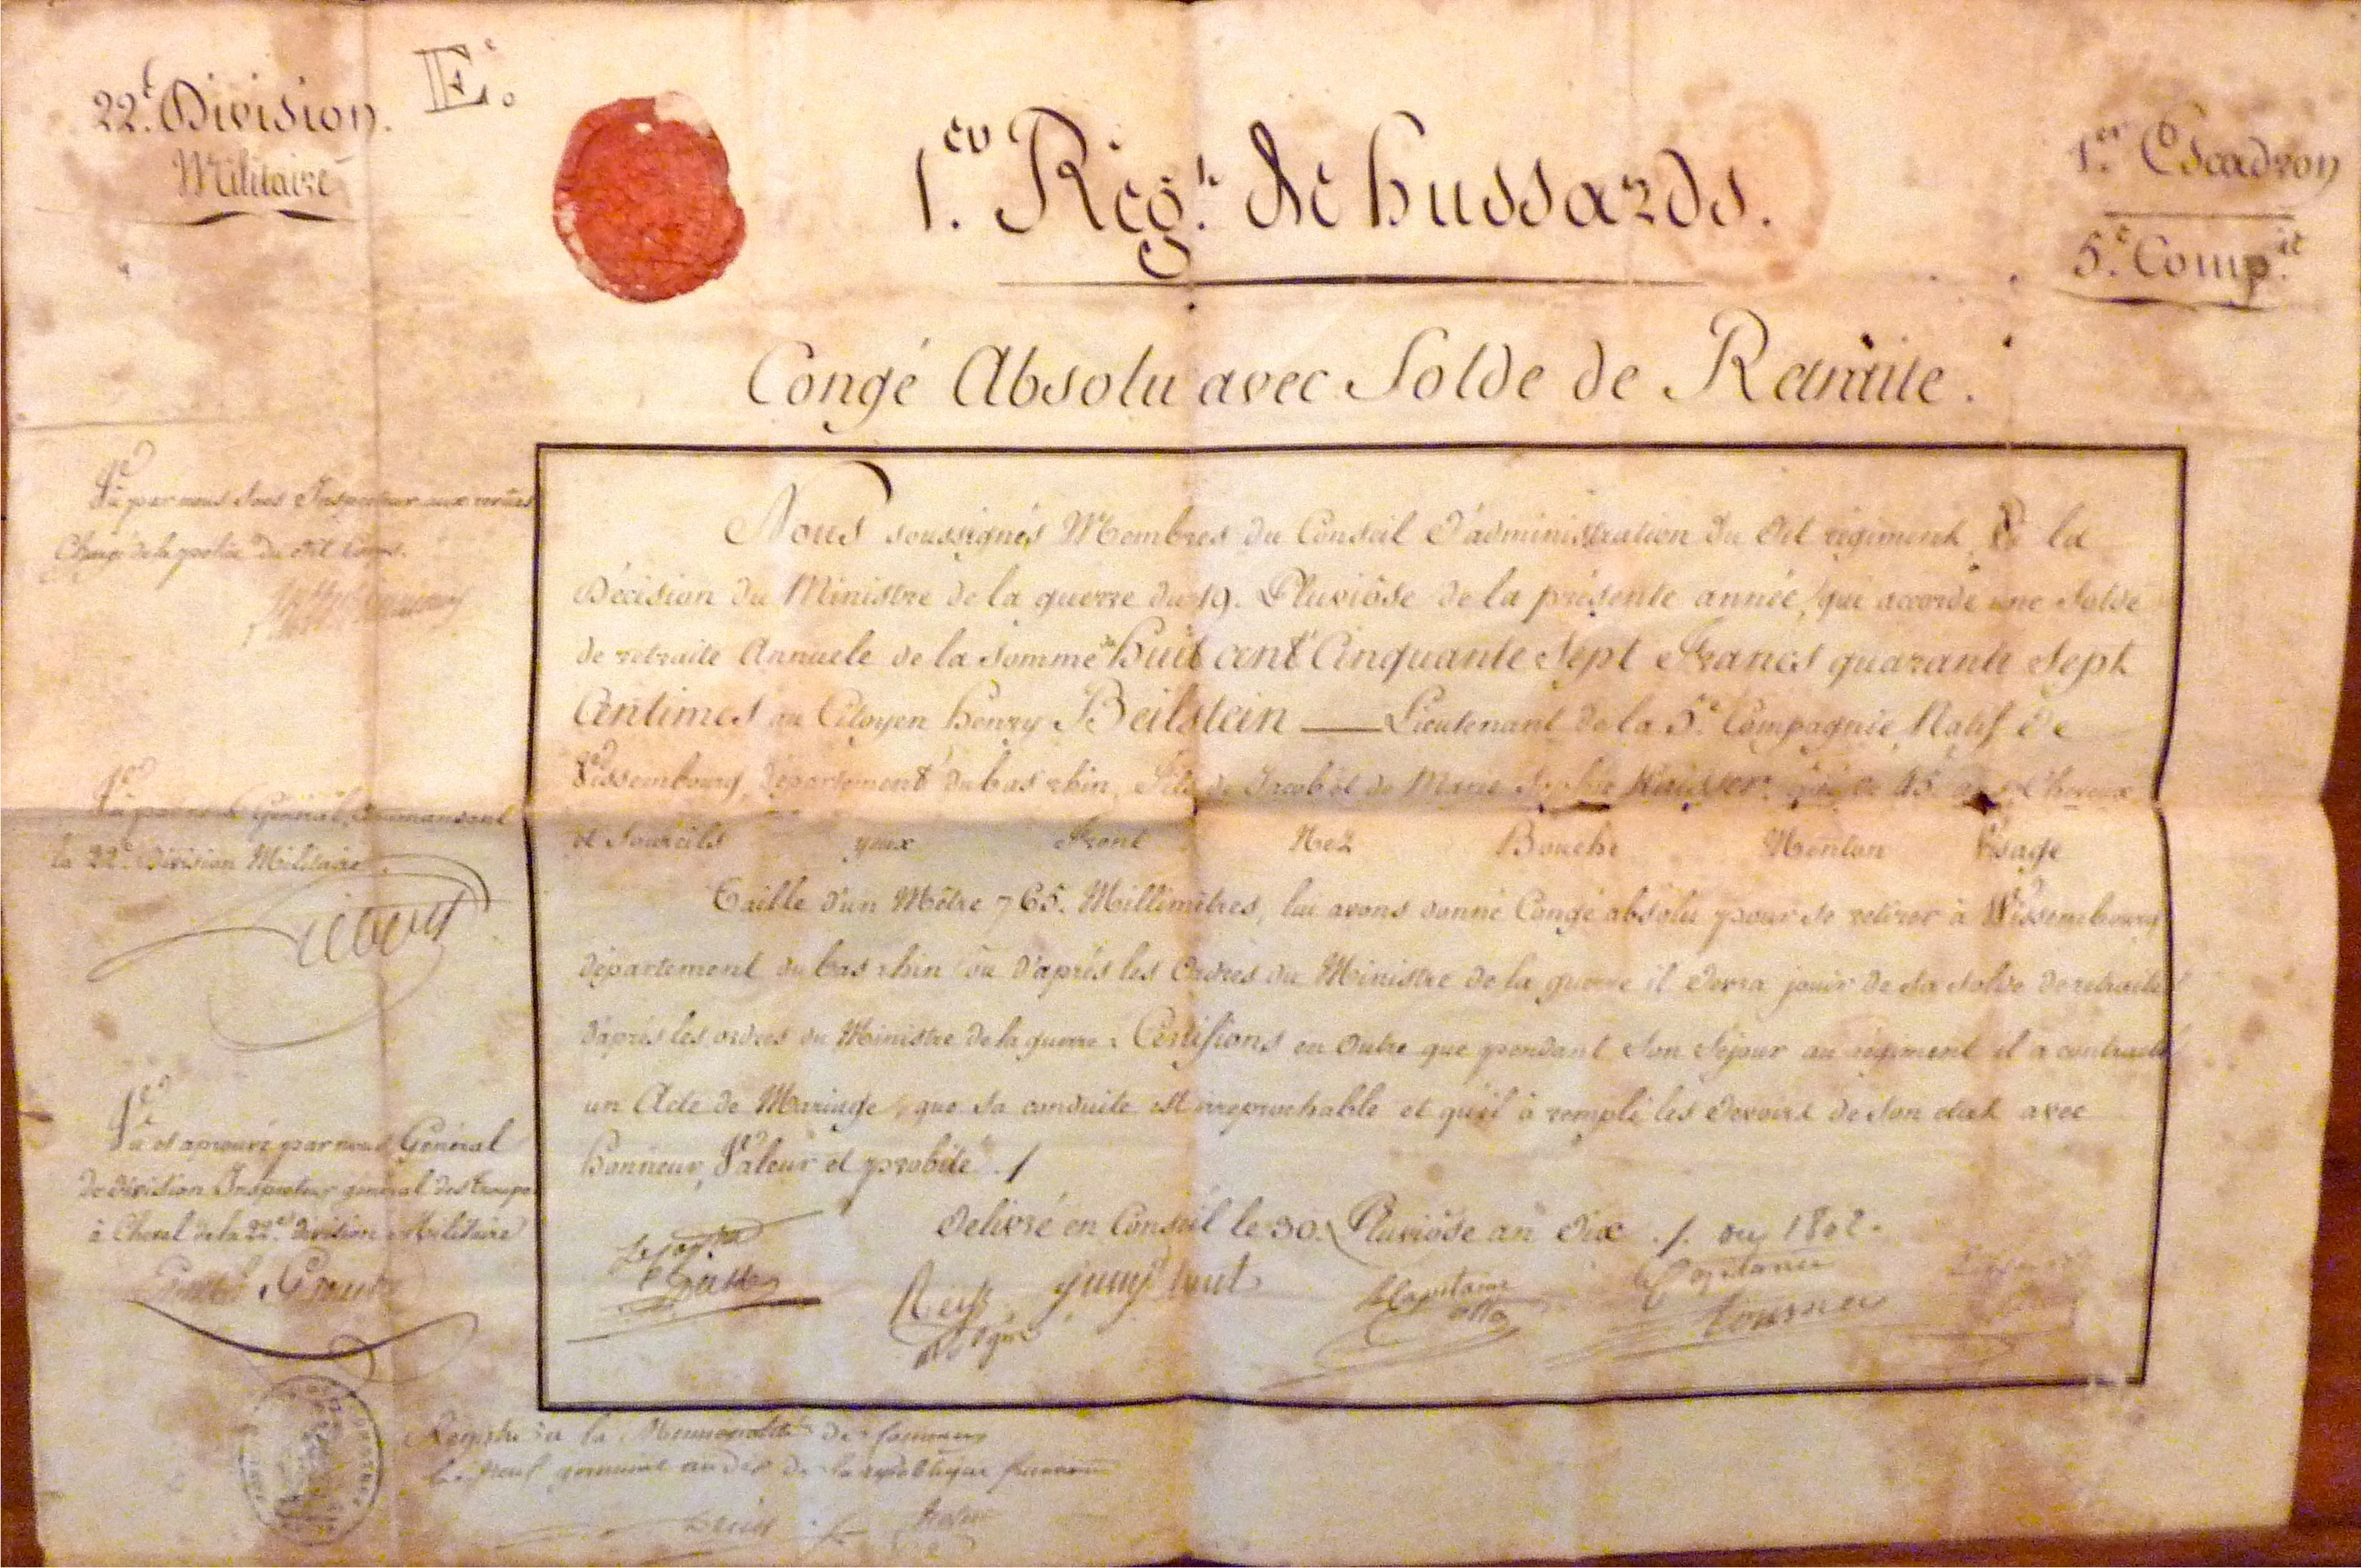 22.e Division.
Militaire
E.e
1.er Rég.t de hussards.
1.er Escadron
5.e Comp.ie
Congé Absolu avec Solde de Retraite.
Vu par nous Sous Inspecteur aux revues
Chargé de la police du dit Corps.
Vu par nous Général Commandant
la 22.e Division Militaire.
Vu et aprouvé par nous Général
de division Inspecteur général des troupes
à Cheval de la 22.e division Militaire
Nous soussignés Membres du Conseil d'administration du dit régiment, Vu la
Décision du Ministre de la guerre du 19. Pluviôse de la présente année, qui accorde une Solde
de retraite Annuele de la somme de huit cent Cinquante Sept Francs quarante Sept
Centimes au Citoyen henry Beilstein — Lieutenant de la 5.e Compagnie, Natif de
Vissembourg, Département du bas rhin, Fils de Jacob et de Marie Sophie agé de 45 ans, Cheveux
et Sourcils yeux Front Nez Bouche Menton Visage
Taille d'un Mêtre 765. Millimêtres, lui avons donné Congé absolu pour se retirer à Vissembourg
département du bas rhin où d'après les Ordres du Ministre de la guerre il devra jouir de sa solde de retraite
d'après les ordres du Ministre de la guerre. Certifions en Outre que pendant Son Séjour au régiment il a contracté
un Acte de Mariage, que sa conduite est irreprochable et qu'il à rempli les devoirs de son état avec
honneur, Valeur et probité ./
Delivré en Conseil le 30. Pluviôse an dix ./. ou 1802.
Le Capitaine
Otto
le Capitaine
de la république